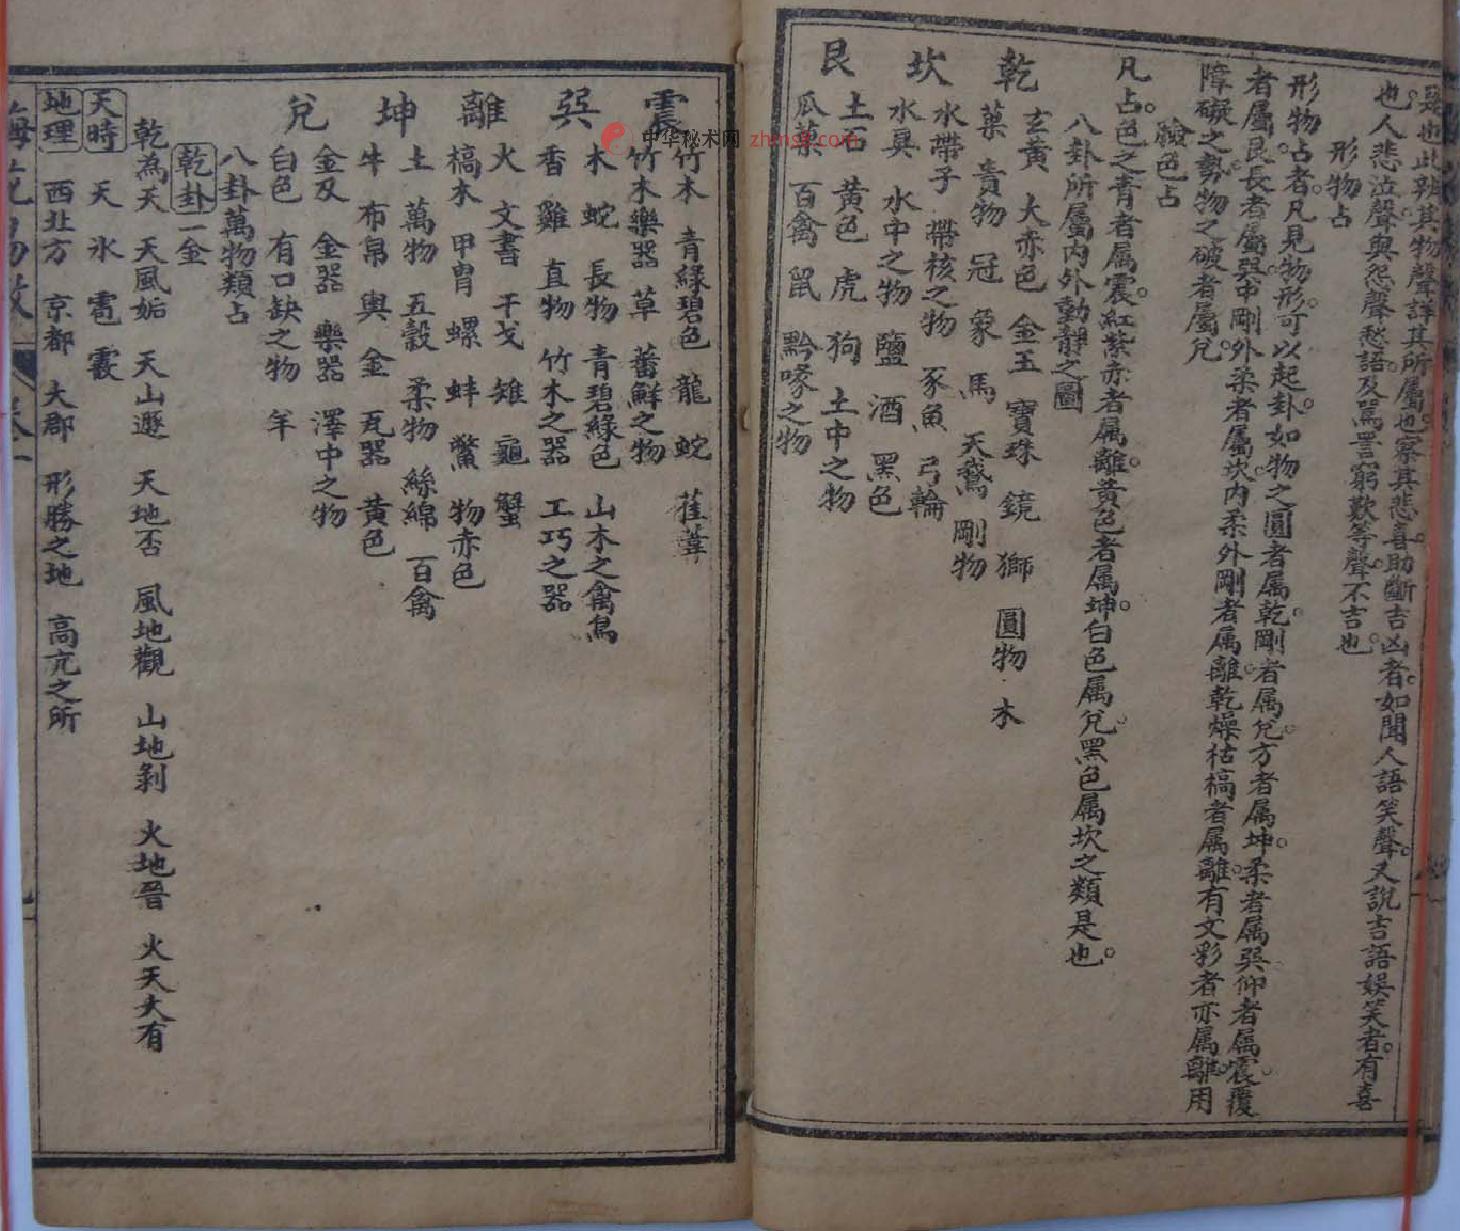 是也此辨其物聲詳其所屬也察其悲喜助斷吉凶者如聞人語笑聲又說吉語娛笑者有喜
也人悲泣聲與怨聲愁語及罵詈窮歎等聲不吉也
形物占
形物占者凡見物形可以起卦如物之圓者属乾剛者属兌方者属坤柔者属巽仰者属震覆
者屬艮長者屬巽中剛外柔者屬坎内柔外剛者属離乾燥枯槁者属離有文彩者亦属離用
障礙之勢物之破者屬兌
驗色占
凡占色之青者属震紅紫赤者属離黃色者属坤白色属兌黑色属坎之類是也
八卦所屬内外動靜之圖
乾
玄黃 大赤色 金玉 寶珠 鏡 獅 圓物 木
菓 貴物 冠 象 馬 天鵞 剛物
坎
水帶子 帶核之物 豕魚 弓輪
水具 水中之物 鹽 酒 黑色
艮
土石 黄色 虎 狗 土中之物
瓜菓 百禽 鼠 黔喙之物
震
竹木 青綠碧色 龍 蛇 萑葦
竹木樂器 草 蕃鮮之物
巽
木 蛇 長物 青碧綠色 山木之禽鳥
香 雞 直物 竹木之器 工巧之器
離
火 文書 干戈 雉 龜 蟹
槁木 甲冑 螺 蚌 鱉 物赤色
坤
土 萬物 五穀 柔物 絲綿 百禽
牛 布帛 輿 金 瓦器 黄色
兌
金及 金器 樂器 澤中之物
白色 有口缺之物 羊
八卦萬物類占
乾卦一金
乾為天 天風姤 天山遯 天地否 風地觀 山地剝 火地晉 火天大有
天時 天 氷 雹 霰
地理 西北方 京都 大郡 形勝之地 高亢之所
中华秘术网 zhms8.com